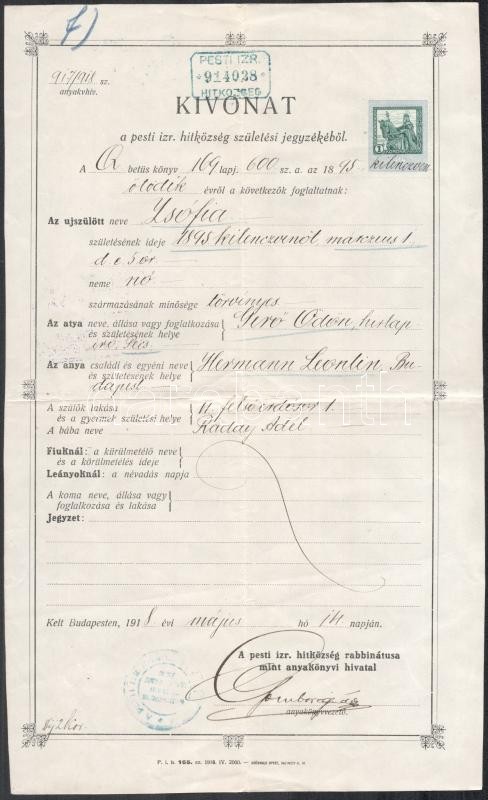 917/918 sz.
anyakvhiv.
PESTI IZR.
914028
HITKÖZSÉG
KIVONAT
a pesti izr. hitközség születési jegyzékéből.
A betüs könyv 169 lapj. 600 sz. a. az 1895
kilenczven
ötödik évről a következők foglaltatnak:
Az ujszülött neve Zsófia
születésének ideje 1895 kilenczvenöt március 1.
d e 5 ór
neme nő
származásának minősége törvényes
Az atya neve, állása vagy foglalkozása és születésének helye Gerő Ödön, hirlap
iró, Pécs
Az anya családi és egyéni neve és születésének helye Hermann Leontin, Bu-
dapest
A szülők lakása és a gyermek születési helye VI. felsőerdősor 1.
A bába neve Ráday Adél
Fiuknál: a körülmetélő neve
és a körülmetélés ideje
Leányoknál: a névadás napja
A koma neve, állása vagy
foglalkozása és lakása
Jegyzet:
Kelt Budapesten, 1918 évi május hó 14 napján.
A pesti izr. hitközség rabbinátusa
mint anyakönyvi hivatal
anyakönyvvezető.
P. i. h. 166. sz. 1918. IV. 2000.